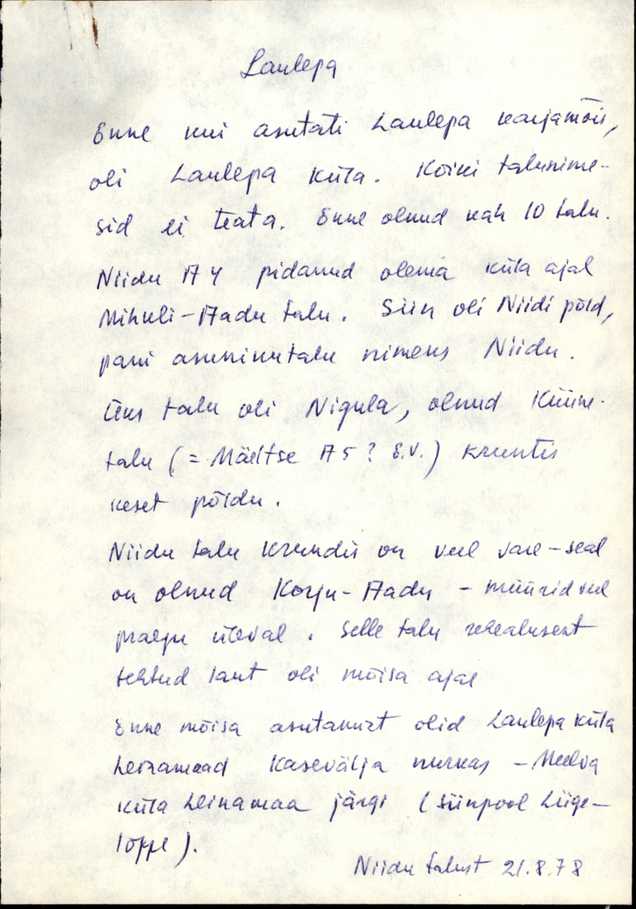 Laulepa
Enne kui asutati Laulepa karjamõis,
oli Laulepa küla. Kõiki talunime-
sid ei teata. Enne olnud kah 10 talu.
Niidu A4 pidanud olema küla ajal
Mihkli-Aadu talu. Siin oli Niidi põld,
pani asunikutalu nimeks Niidu.
Üks talu oli Nigula, olnud Küüne-
talu (= Mäeltse A5? E.V.) kruntis
keset põldu.
Niidu talu krundil on veel vare - seal
on olnud Korju-Aadu - müürid veel
praegu üleval. Selle talu rehealusest
tehtud laut oli mõisa ajal
Enne mõisa asutamist olid Laulepa küla
heinamaad Kasevälja nurkas - Meelva
küla heinamaa järgi (siinpool Liige-
lõppe).
Niidu talust 21.8.78